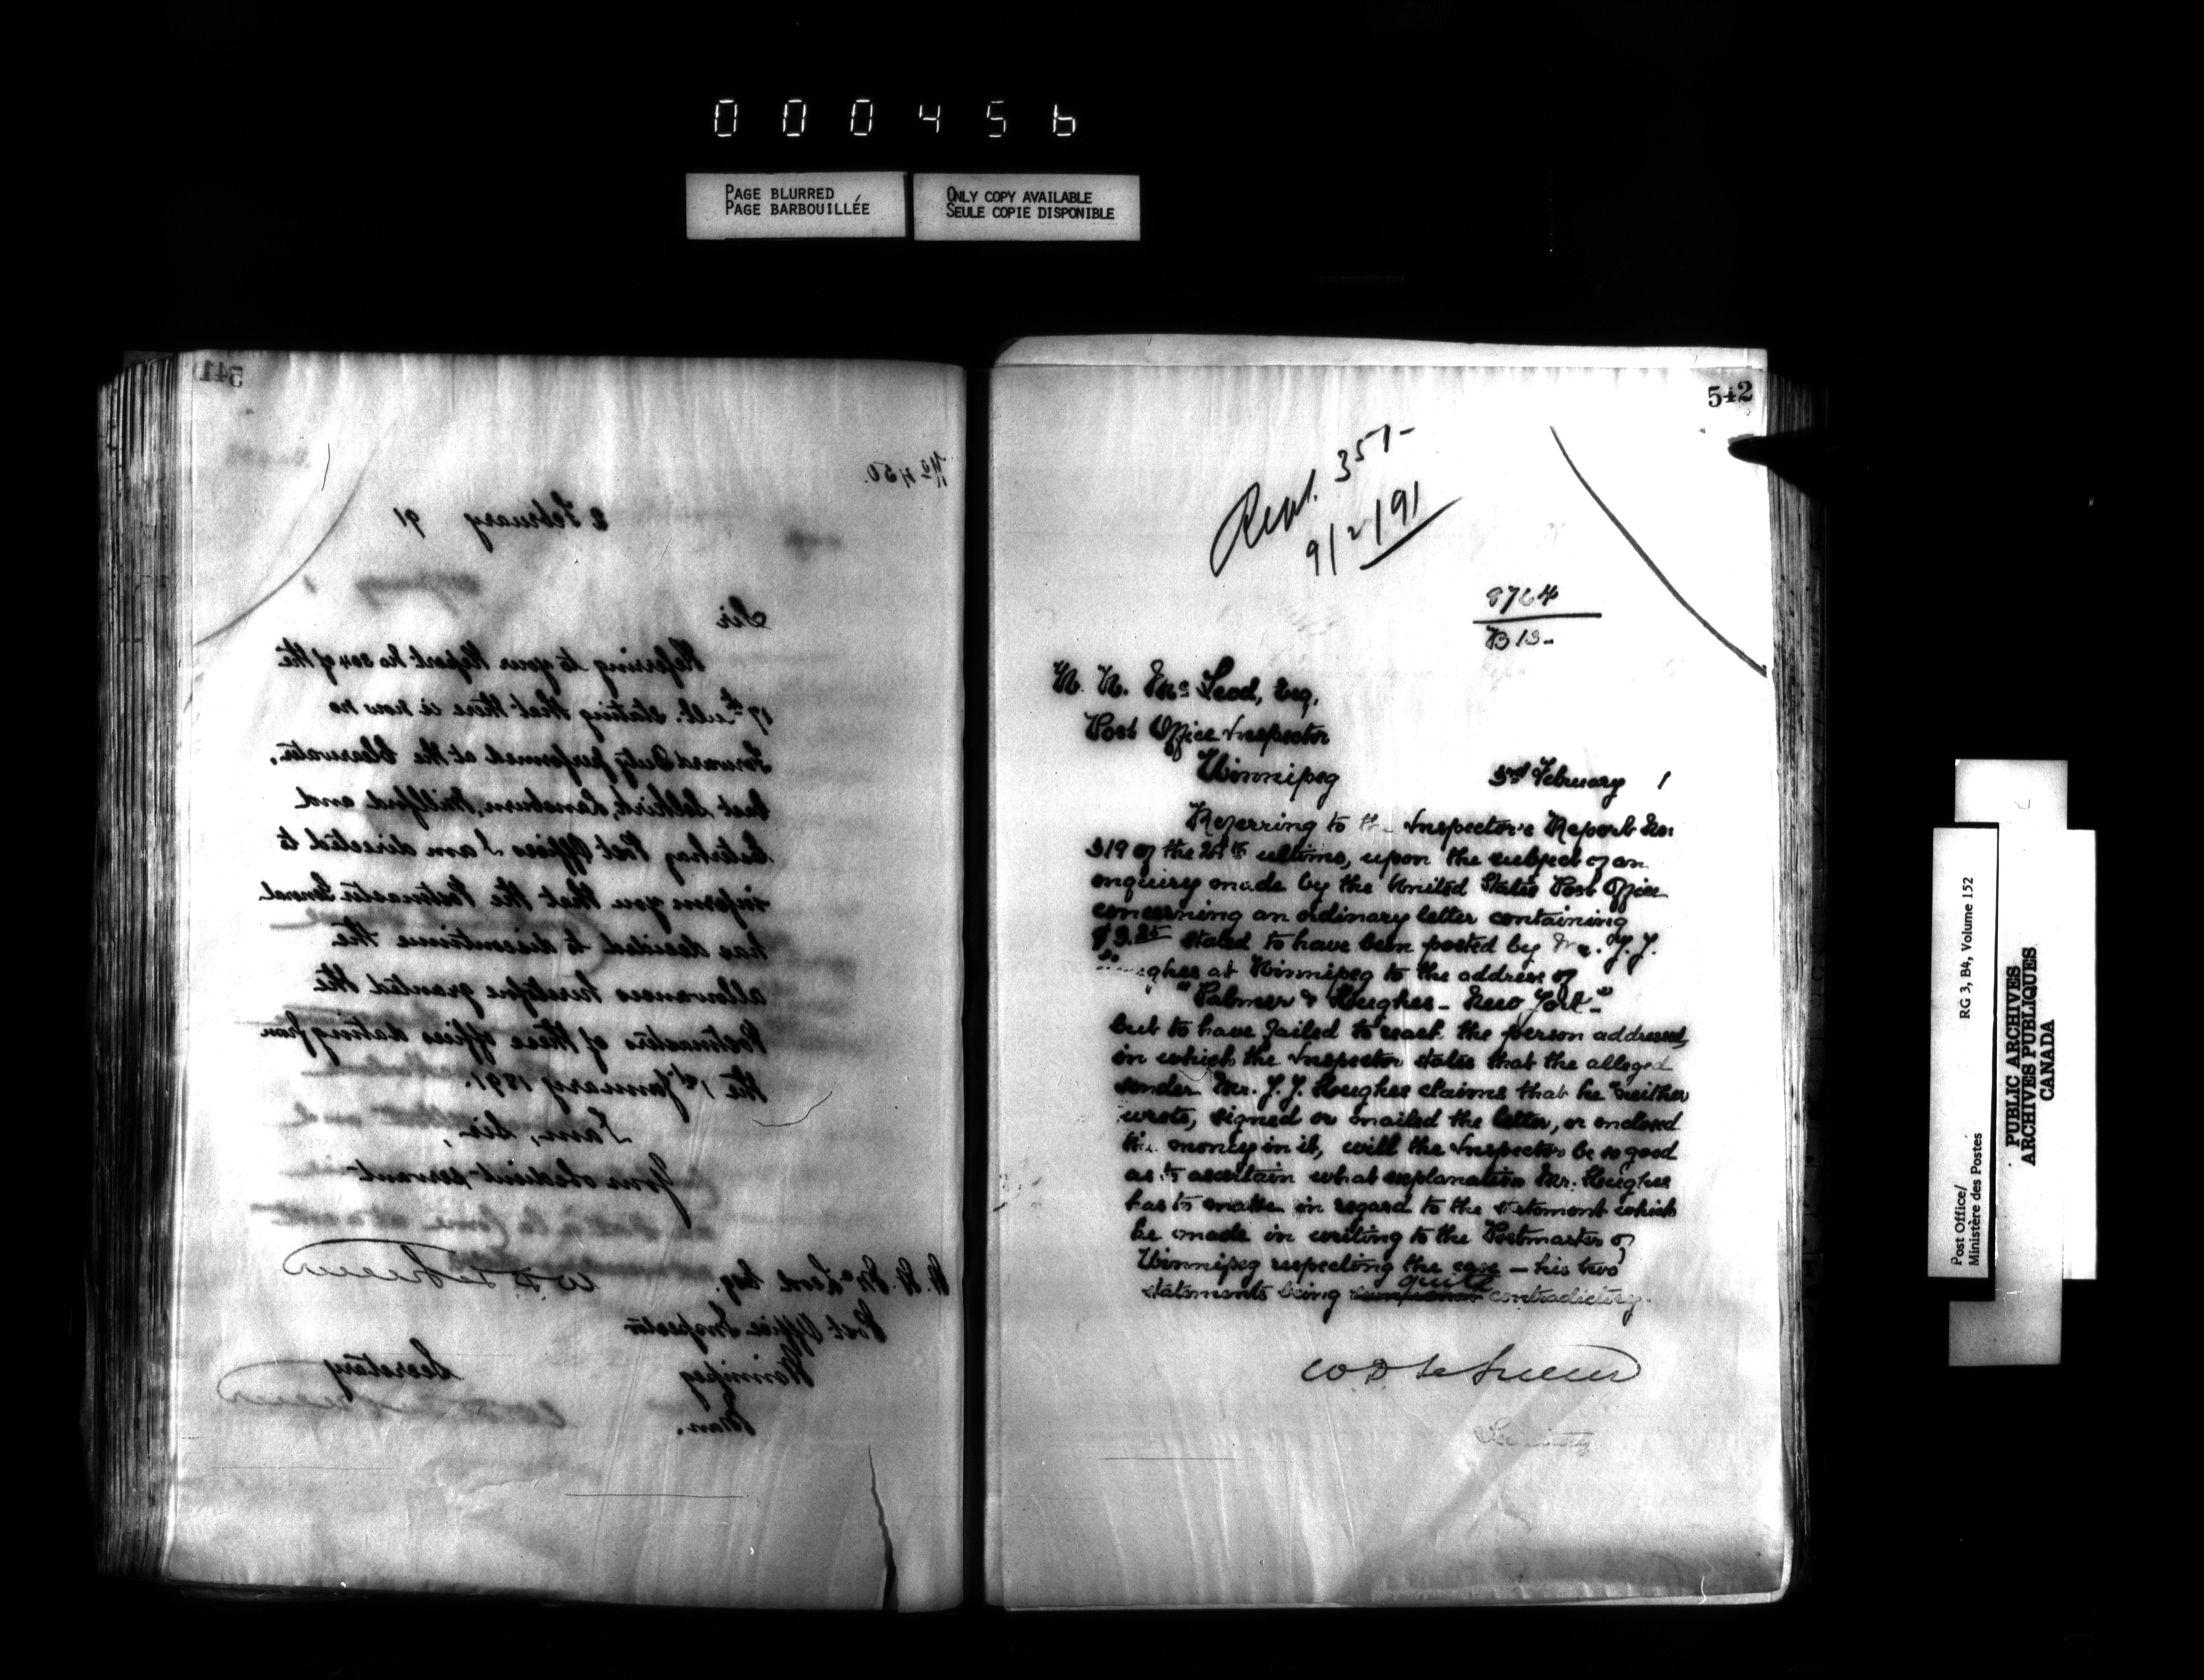 000456
PAGE BLURRED
PAGE BARBOUILLÉE
ONLY COPY AVAILABLE
SEULE COPIE DISPONIBLE
541
No 450.
2 February 91
Sir
Referring to your Report No 304 of the
17th ult. stating that there is now no
Forward Duty performed at the Clearwater,
East Selkirk, Lansburn, Millford and
Post Offices I am directed to
inform you that the Postmaster General
has decided to discontinue the
allowances heretofore granted the
Postmasters of these offices dating from
the 1st January 1891.
I am, Sir,
Your obedient servant
W D LeSueur
Secretary
W. W. McLeod Esq.
Post Office Inspector
Winnipeg
Man.
542
Rept. 357-
9/2/91
8764
B 13-
W. W. McLeod, Esq,
Post Office Inspector
Winnipeg
3rd February 1
Referring to the Inspector's Report No:
319 of the ultimo, upon the subject of an
enquiry made by the United States Post Office
concerning an ordinary letter containing
$3.25 stated to have been posted by Mr. J. J.
Hughes at Winnipeg to the address of
"Palmer & Hughes - New York"
but to have failed to reach the person addressed,
in which the Inspector states that the alleged
sender Mr. J. J. Hughes claims that he neither
wrote, signed or mailed the letter, or enclosed
the money in it, will the Inspector be so good
as to ascertain what explanation Mr. Hughes
has to make in regard to the statement which
he made in writing to the Postmaster of
Winnipeg respecting the case — his two
statements being quite contradictory.
W D LeSueur
Secretary
Post Office/
Ministère des Postes
RG 3, B4, Volume 152
PUBLIC ARCHIVES
ARCHIVES PUBLIQUES
CANADA